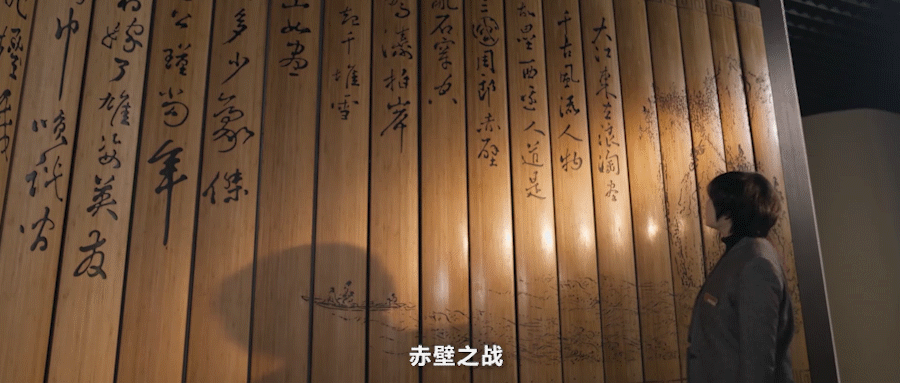 大江東去浪淘盡
千古風流人物
故壘西邊人道是
三國周郎赤壁
亂石穿空
濤拍岸
起千堆雪
山如畫
多少豪傑
公瑾當年
初嫁了雄姿英發
巾談笑間
赤壁之战